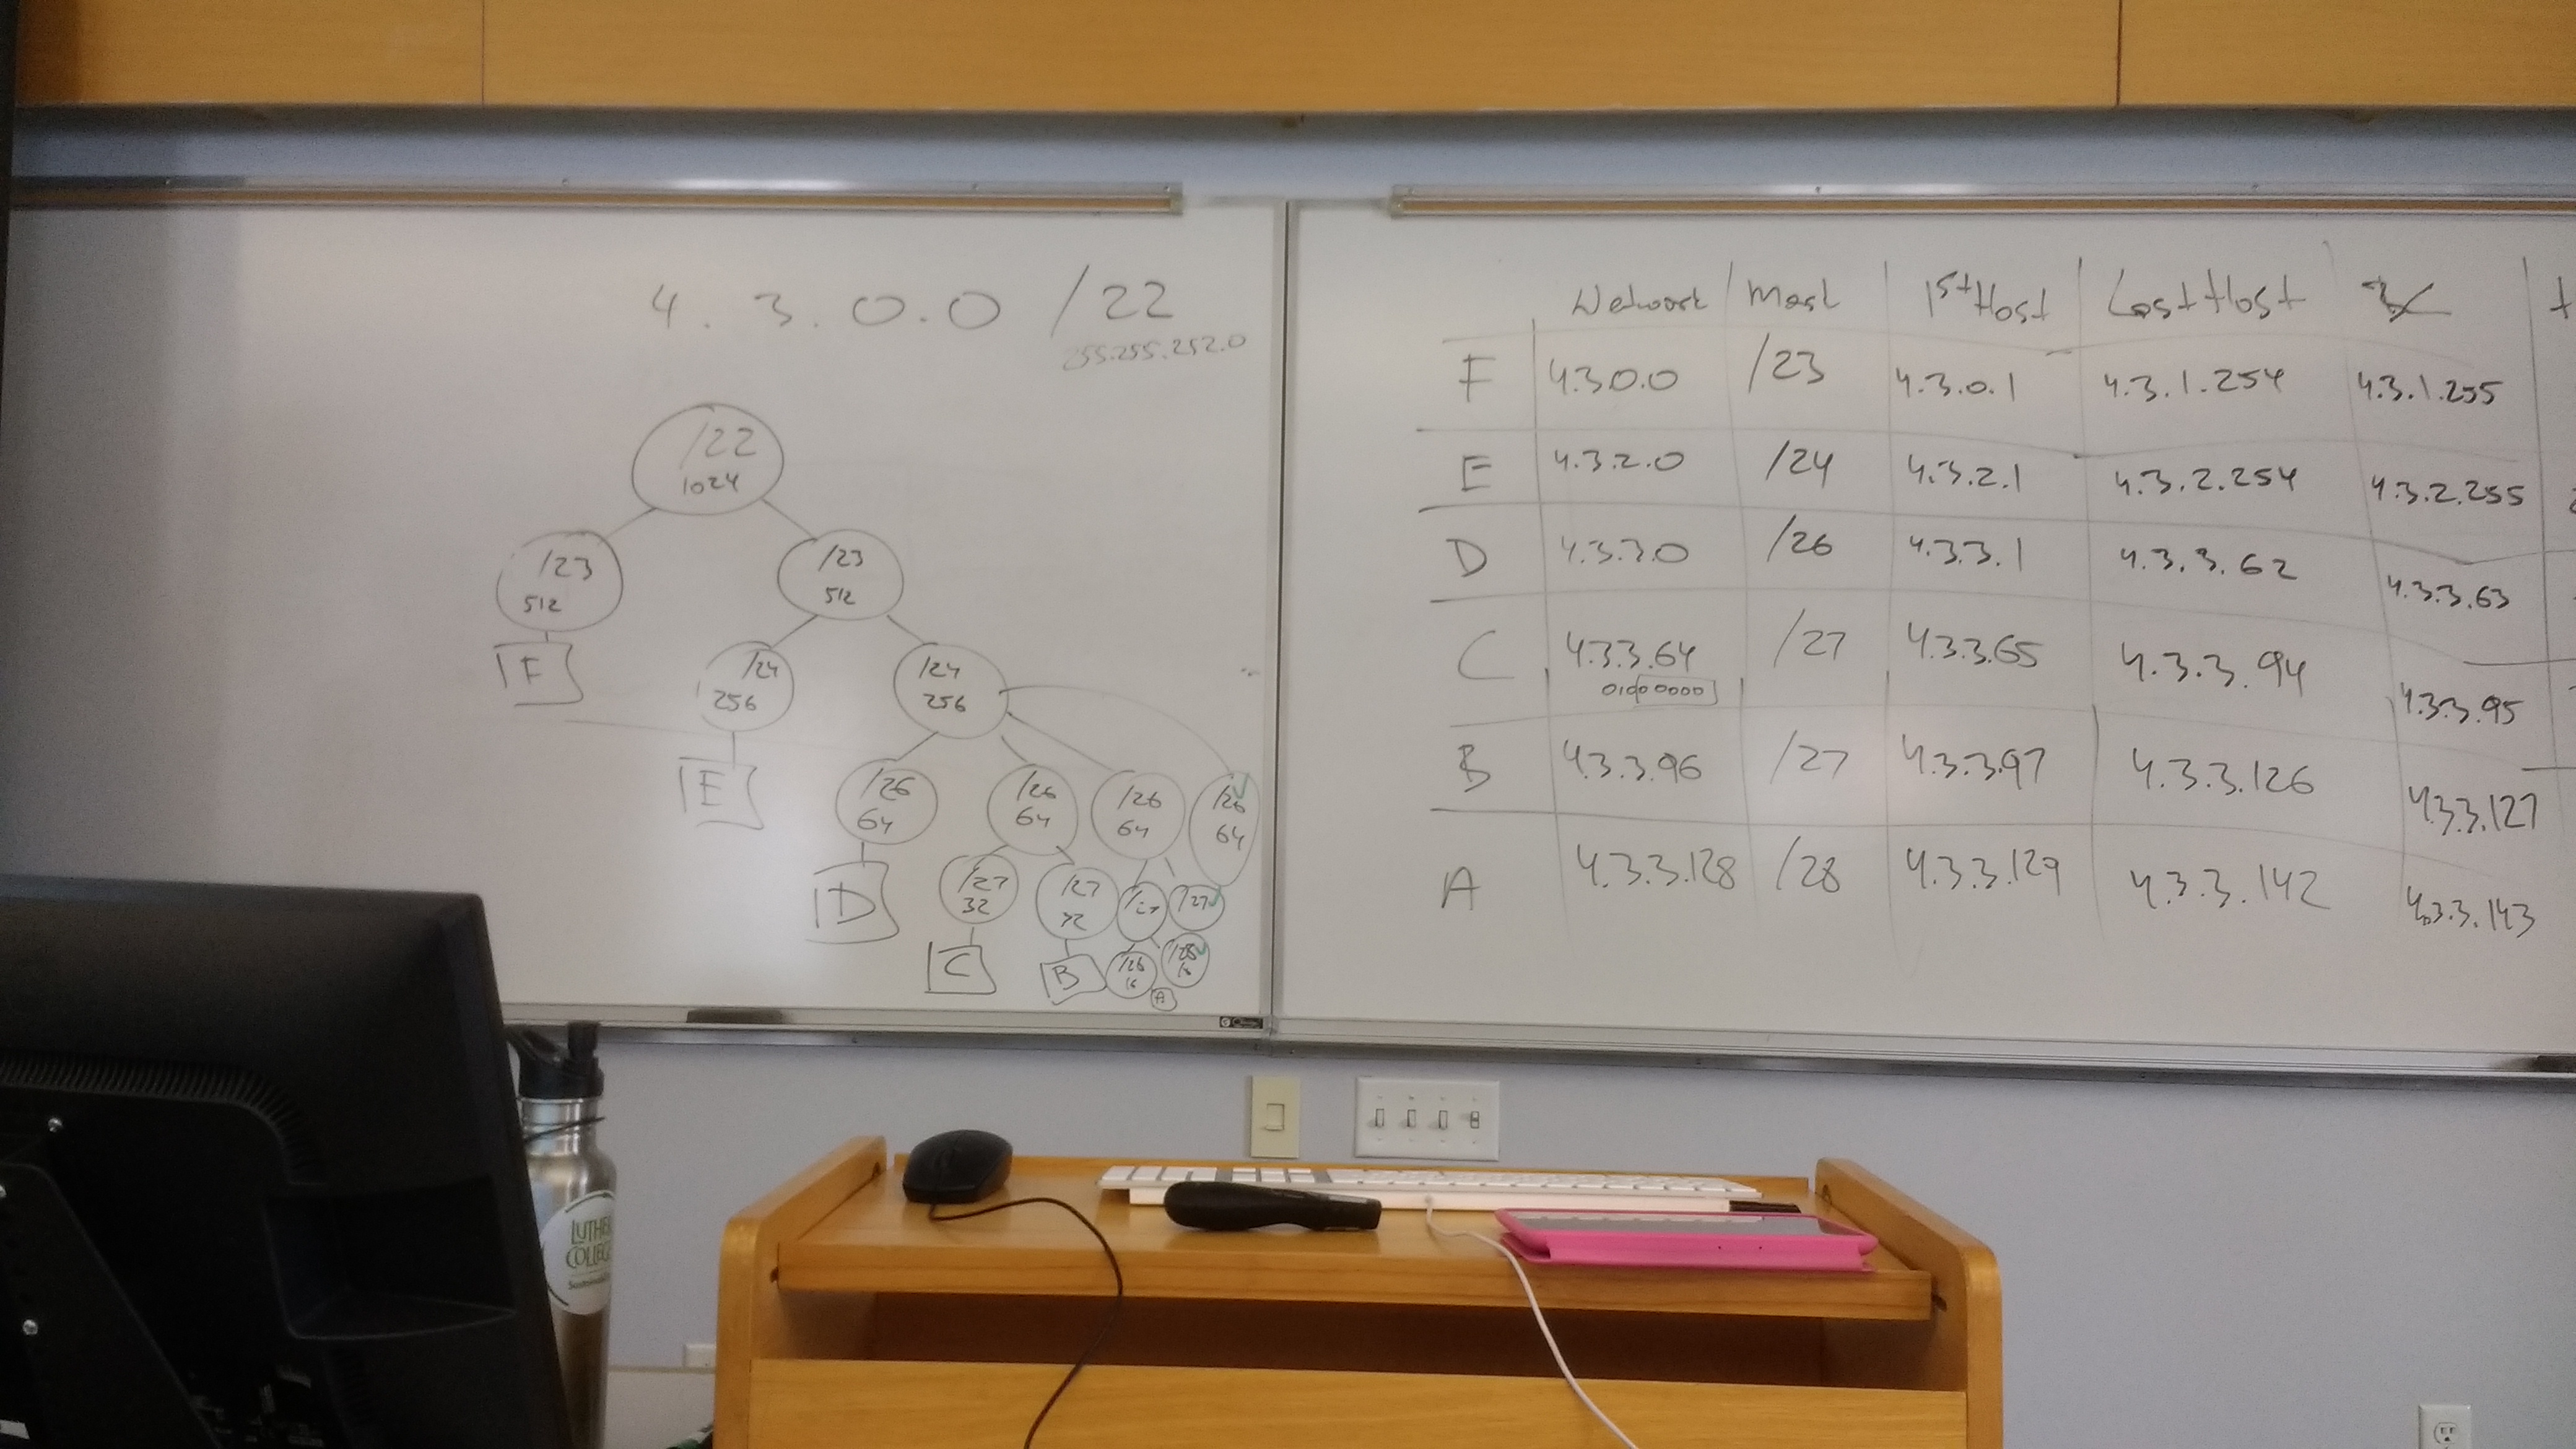 4.3.0.0 /22
255.255.252.0
/22
1024
/23
512
/23
512
F
/24
256
/24
256
E
/26
64
/26
64
/26
64
/26
64
D
/27
32
/27
32
/27
/27
C
B
/28
16
/28
16
A
Network Mask 1st Host Last Host
F 4.3.0.0 /23 4.3.0.1 4.3.1.254 4.3.1.255
E 4.3.2.0 /24 4.3.2.1 4.3.2.254 4.3.2.255
D 4.3.3.0 /26 4.3.3.1 4.3.3.62 4.3.3.63
C 4.3.3.64 /27 4.3.3.65 4.3.3.94 4.3.3.95
01000000
B 4.3.3.96 /27 4.3.3.97 4.3.3.126 4.3.3.127
A 4.3.3.128 /28 4.3.3.129 4.3.3.142 4.3.3.143
LUTHER
COLLEGE